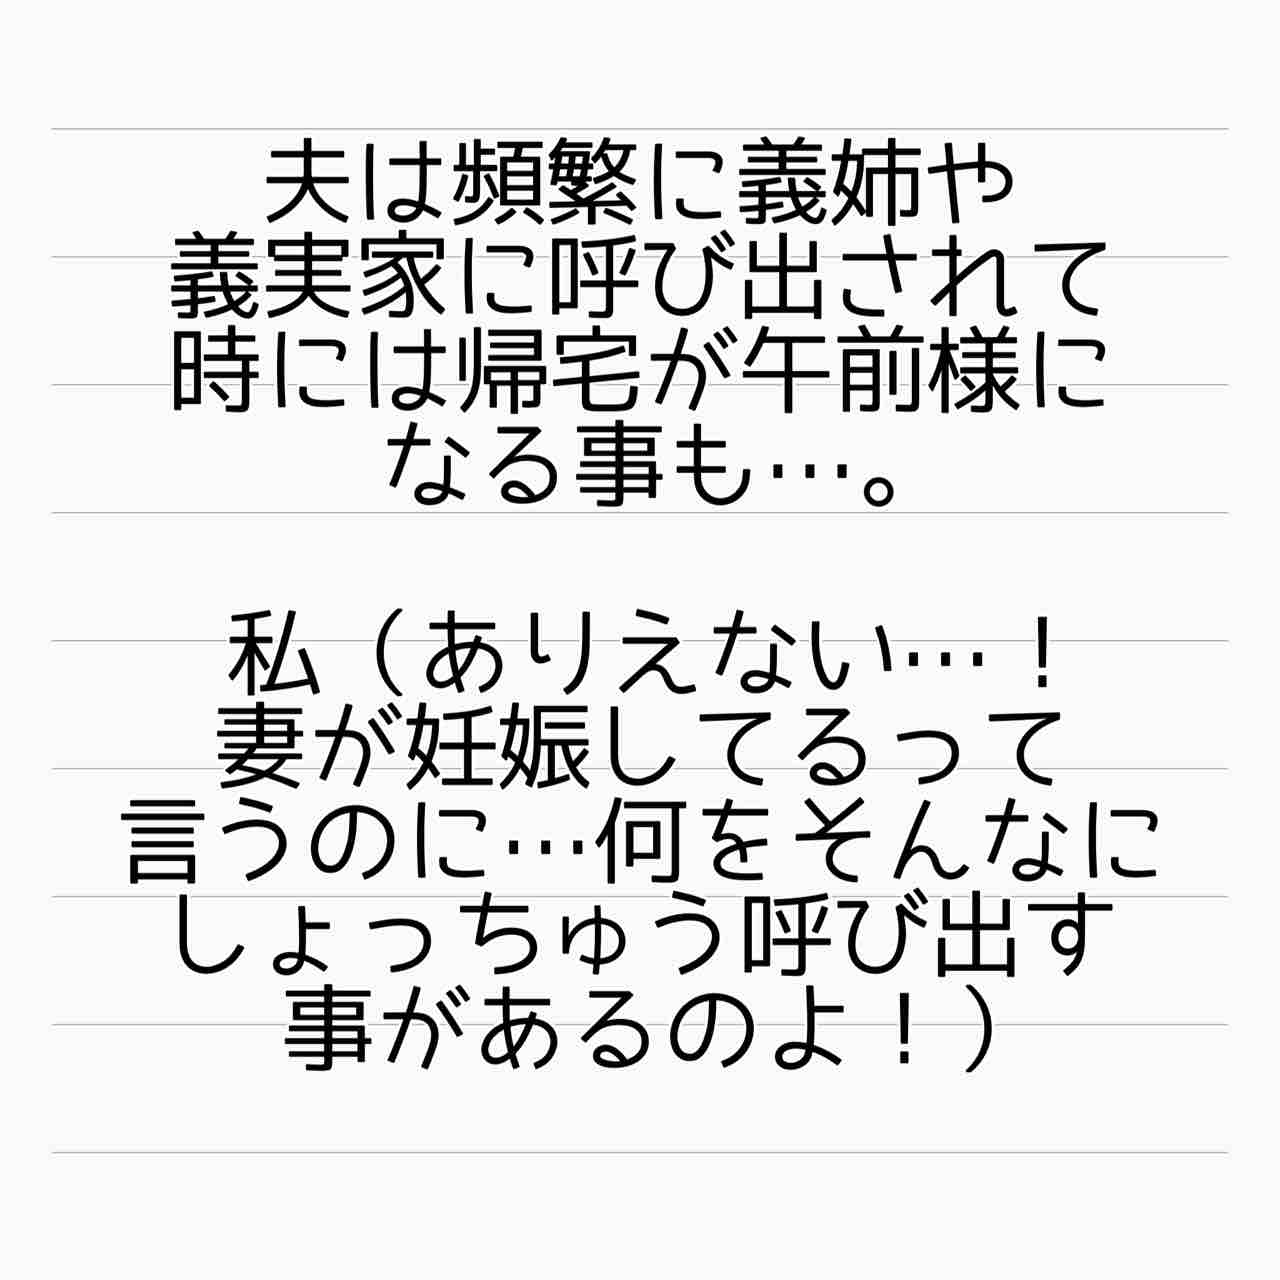 夫は頻繁に義姉や
義実家に呼び出されて
時には帰宅が午前様に
なる事も…。
私（ありえない…！
妻が妊娠してるって
言うのに…何をそんなに
しょっちゅう呼び出す
事があるのよ！）